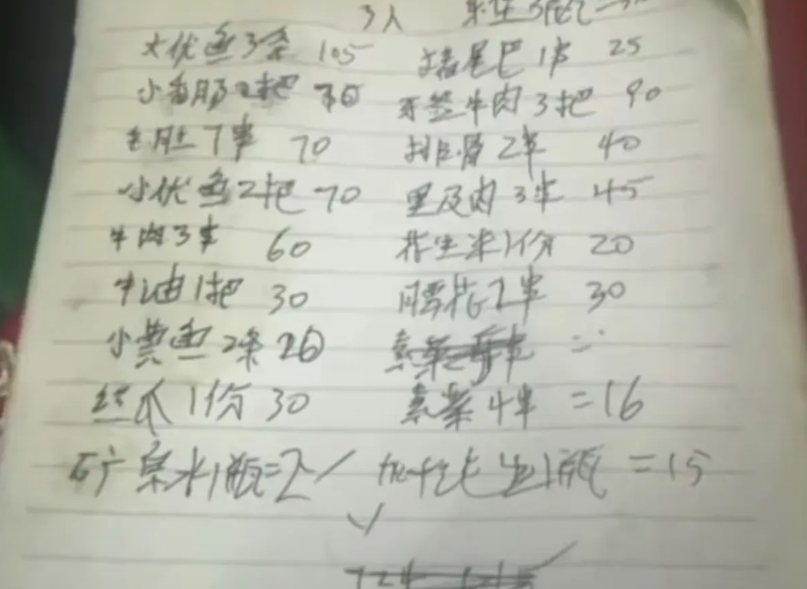 3人
大优鱼3条 105 猪尾巴1串 25
小香肠2把 牙签牛肉3把 90
毛肚7串 70 排骨2串 40
小优鱼2把 70 里及肉3串 45
牛肉3串 60 花生米1份 20
牛油1把 30 腰花2串 30
小黄鱼2条 20
丝瓜1份 30 素菜4串 =16
矿泉水1瓶=2 1瓶 =15